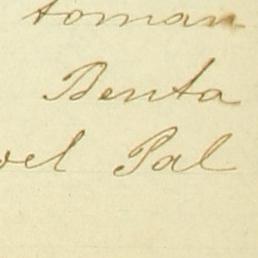 toman
Benta
oel Pal